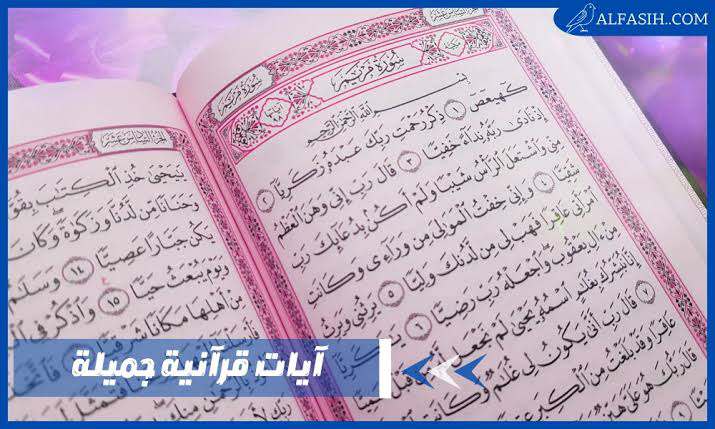 ALFASIH.COM
سُورَةُ مَرْيَمَ
بِسْمِ اللَّهِ الرَّحْمَٰنِ الرَّحِيمِ
كٓهيعٓصٓ ١ ذِكْرُ رَحْمَتِ رَبِّكَ عَبْدَهُۥ زَكَرِيَّآ ٢
إِذْ نَادَىٰ رَبَّهُۥ نِدَآءً خَفِيًّا ٣ قَالَ رَبِّ إِنِّي وَهَنَ ٱلْعَظْمُ
مِنِّي وَٱشْتَعَلَ ٱلرَّأْسُ شَيْبًا وَلَمْ أَكُنۢ بِدُعَآئِكَ رَبِّ
شَقِيًّا ٤ وَإِنِّي خِفْتُ ٱلْمَوَٰلِيَ مِن وَرَآءِي وَكَانَتِ
ٱمْرَأَتِي عَاقِرًا فَهَبْ لِي مِن لَّدُنكَ وَلِيًّا ٥ يَرِثُنِي وَيَرِثُ
مِنْ ءَالِ يَعْقُوبَ وَٱجْعَلْهُ رَبِّ رَضِيًّا ٦ يَٰزَكَرِيَّآ
إِنَّا نُبَشِّرُكَ بِغُلَٰمٍ ٱسْمُهُۥ يَحْيَىٰ لَمْ نَجْعَل
قَالَ رَبِّ أَنَّىٰ يَكُونُ لِي غُلَٰمٌ وَكَانَتِ
عَاقِرًا وَقَدْ بَلَغْتُ مِنَ ٱلْكِبَرِ
قَالَ رَبُّكَ هُوَ عَلَيَّ هَيِّنٌ
سُورَةُ مَرْيَمَ
الجزء السادس عشر
يَٰيَحْيَىٰ خُذِ ٱلْكِتَٰبَ
وَحَنَانًا مِّن لَّدُنَّا وَزَكَوٰةً وَكَانَ
يَكُن جَبَّارًا عَصِيًّا ١٤ وَسَلَٰمٌ
وَيَوْمَ يُبْعَثُ حَيًّا ١٥ وَٱذْكُرْ فِي
مِنْ أَهْلِهَا مَكَانًا شَرْقِيًّا
آيات قرآنية جميلة